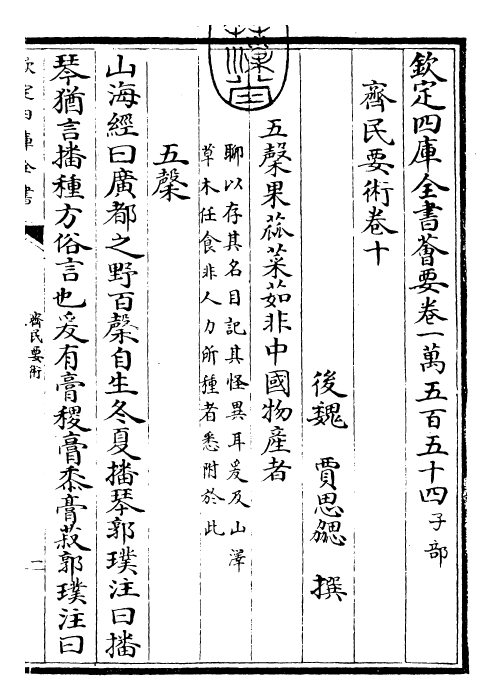 欽定四庫全書薈要卷一萬五百五十四子部
齊民要術卷十
後魏 賈思勰 撰
五糓果蓏菜茹非中國物產者
聊以存其名目記其怪異耳爰及山澤
草木任食非人力所種者悉附於此
五糓
山海經曰廣都之野百糓自生冬夏播琴郭璞注曰播
琴猶言播種方俗言也爰有膏稷膏黍膏菽郭璞注曰
欽定四庫全書
齊民要術